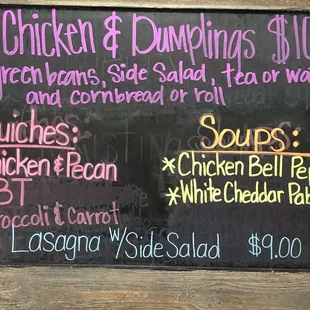 Chicken & Dumplings $10
green beans, side Salad, tea or wa
and cornbread or roll
uiches:
hicken & Pecan
BT
roccoli & Carrot
Soups:
*Chicken Bell Pep
*White Cheddar Pab
Lasagna w/Side Salad $9.00